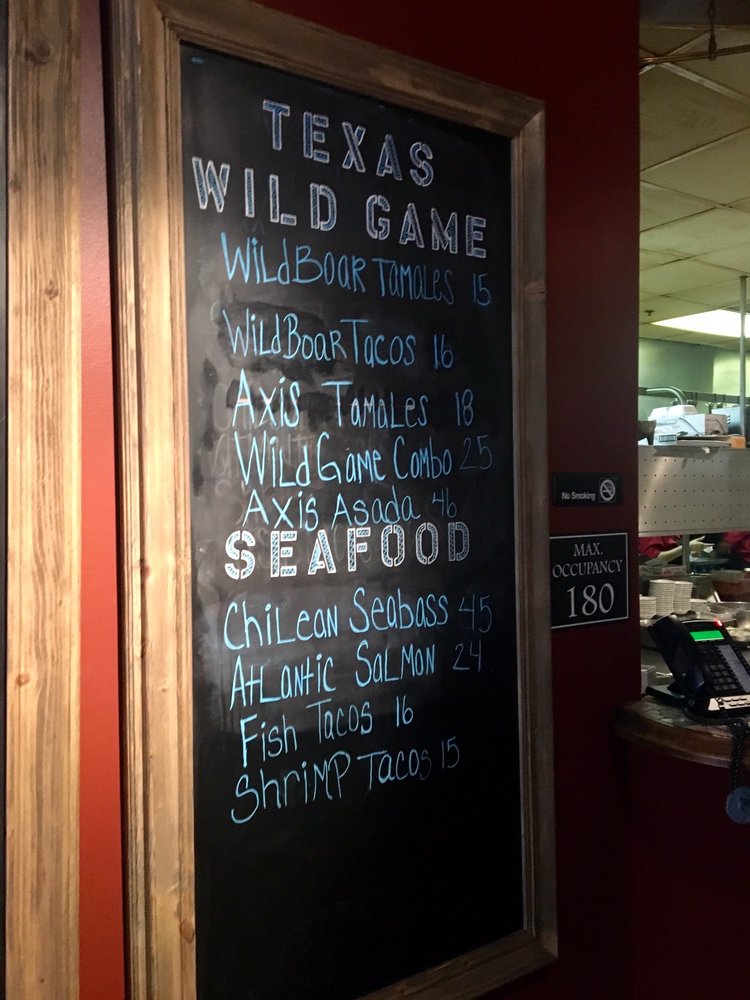 TEXAS
WILD GAME
Wild Boar Tamales 15
Wild Boar Tacos 16
Axis Tamales 18
Wild Game Combo 25
Axis Asada 46
SEAFOOD
Chilean Seabass 45
Atlantic Salmon 24
Fish Tacos 16
Shrimp Tacos 15
No Smoking
MAX.
OCCUPANCY
180